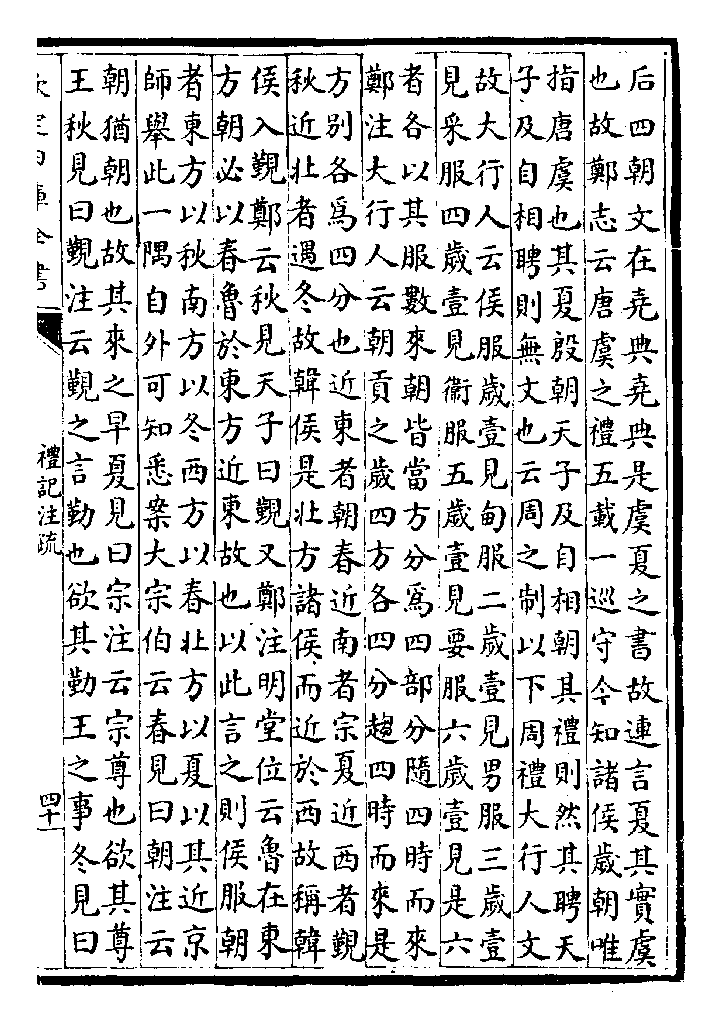 后四朝文在堯典堯典是虞夏之書故連言夏其實虞
也故鄭志云唐虞之禮五載一巡守今知諸侯歲朝唯
指唐虞也其夏殷朝天子及自相朝其禮則然其聘天
子及自相聘則無文也云周之制以下周禮大行人文
故大行人云侯服歲壹見甸服二歲壹見男服三歲壹
見采服四歲壹見衞服五歲壹見要服六歲壹見是六
者各以其服數來朝皆當方分爲四部分隨四時而來
鄭注大行人云朝貢之歲四方各四分趨四時而來是
方別各爲四分也近東者朝春近南者宗夏近西者覲
秋近北者遇冬故韓侯是北方諸侯而近於西故稱韓
侯入覲鄭云秋見天子曰覲又鄭注明堂位云魯在東
方朝必以春魯於東方近東故也以此言之則侯服朝
者東方以秋南方以冬西方以春北方以夏以其近京
師舉此一隅自外可知悉案大宗伯云春見曰朝注云
朝猶朝也故其來之早夏見曰宗注云宗尊也欲其尊
王秋見曰覲注云覲之言勤也欲其勤王之事冬見曰
欽定四庫全書
禮記注疏
四十一